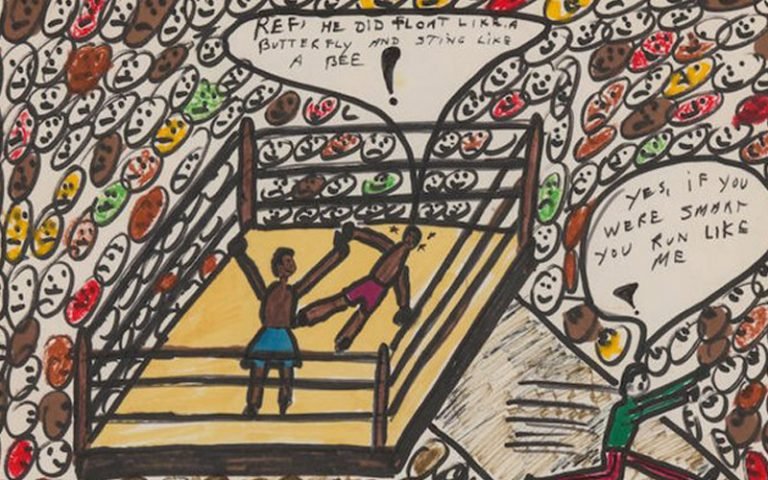 REF, HE DID FLOAT LIKE A
BUTTERFLY AND STING LIKE
A BEE
!
YES, IF YOU
WERE SMART
YOU RUN LIKE
ME